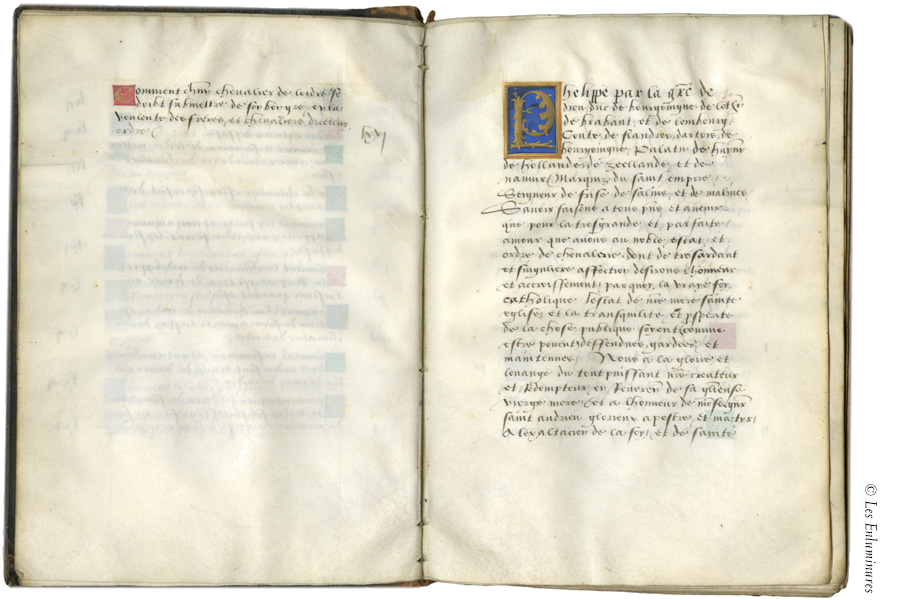 Comment chun chevalier de lordre se
doibt submettre de son bon gre en la
voulente des freres et chevaliers diceluy
ordre
lxvi
Phelippe par la gre de
dieu duc de bourgoingne de lothr
de brabant et de lembourg
Conte de flandres dartois de
bourgoingne Palatin de haynn
de hollande de zeellande et de
namur Marquis du saint empire
Seigneur de frise de salins et de malines
Savoir faisons a tous pns et avenir
que pour la tresgrande et parfaite
amour que avons au noble estat et
ordre de chevalerie dont de tresardant
et singuliere affection desirons lhonneur
et accroissement par quoy la vraye foy
catholique lestat de nre mere sainte
eglise et la tranquilite et psperite
de la chose publique soyent comme
estre peuvent deffendues gardees et
maintenues Nous a la gloire et
louange du tout puissant nre createur
et Redempteur en Reveren de sa glieuse
vierge mere et a lhonneur de monseignr
saint andrieu glorieux apostre et martyr
A lexaltacion de la foy et de sainte
© Les Enluminures